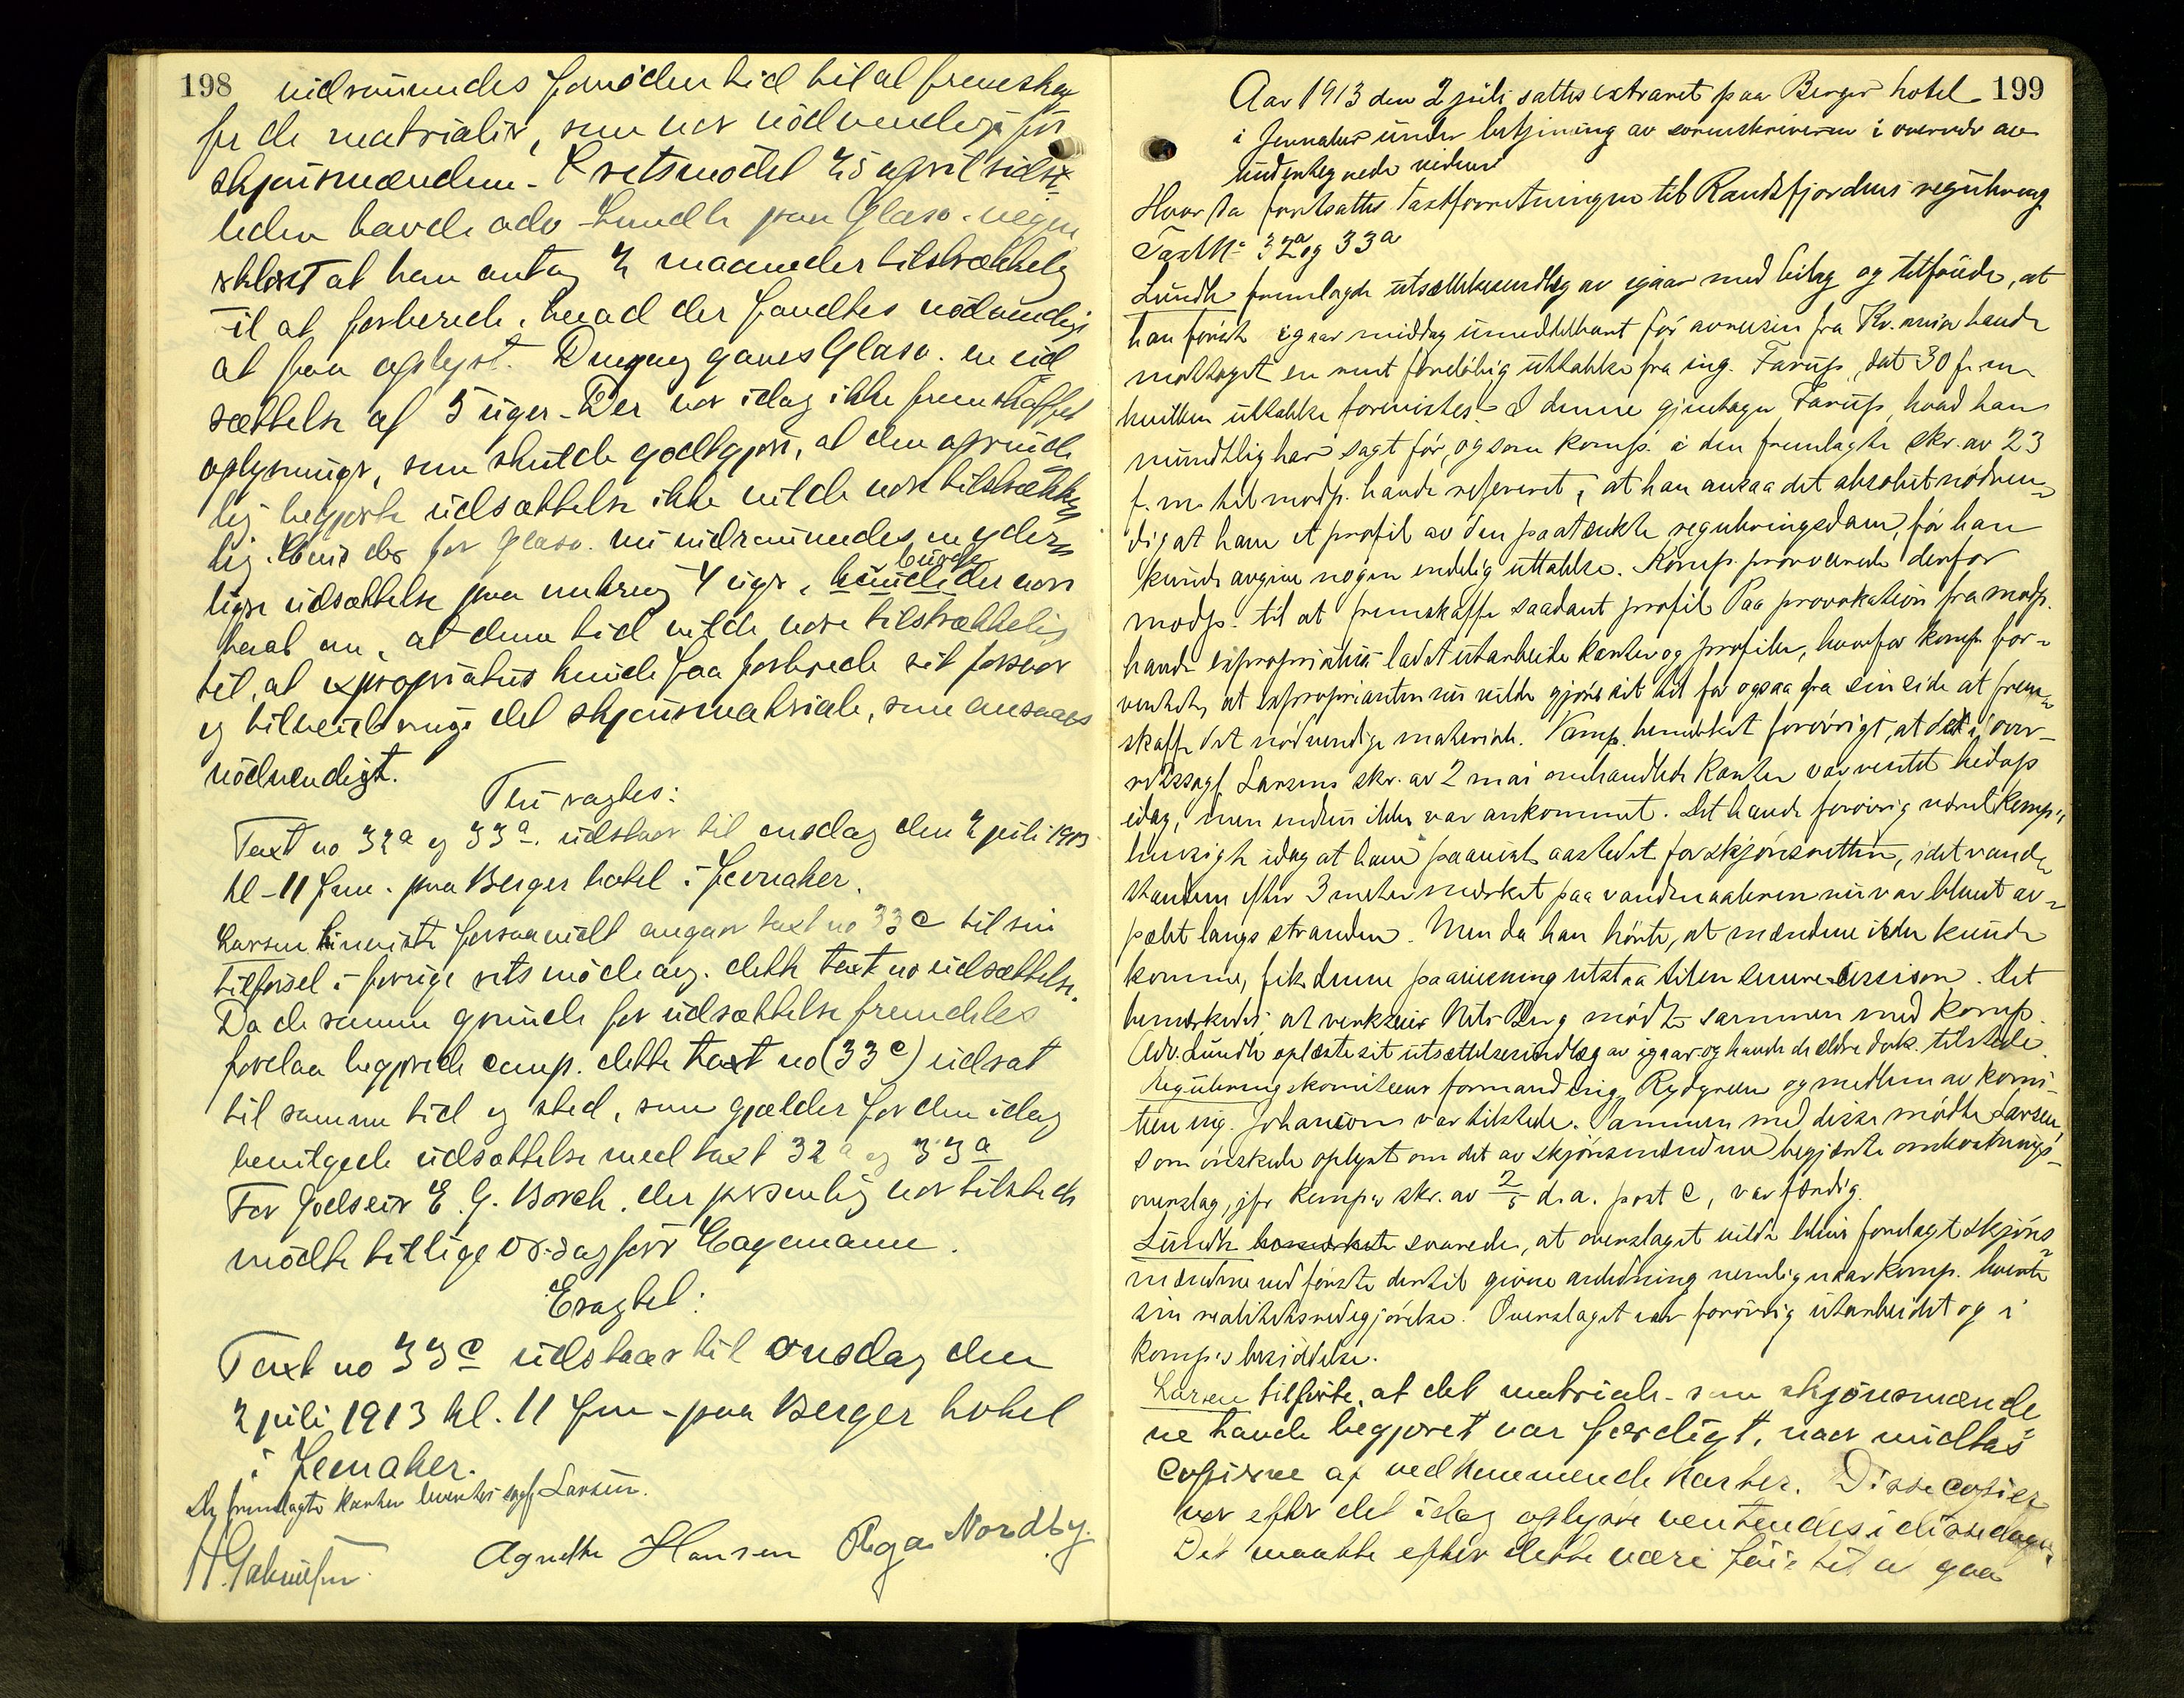 198
indrømmedes fornøden tid til at fremskaf
fe de matrialier, som var nødvendige for
skjønsmændene. I retsmødet 25 april sidst
leden havde adv Lundh paa Glasv. vegne
uttalt at han antog 2 maaneder tilstrækkelig
til at forberede, hvad der fandtes nødvendigt
at faa oplyst. Dengang gaves Glasv. en ud
sættelse af 5 uger. Der var idag ikke fremskaffet
oplysninger, som skulde godtgjøre, at den oprinde
lig begjærte udsættelse ikke vilde være tilstrække
lig. Hvis der for Glasv. nu indrømmedes en yder
ligere udsættelse paa omkring 4 uger, kunde der være
burde
haab om, at denne tid vilde være tilstrækkelig
til, at expropriatus kunde faa forberede sit forsvar
og tilveiebringe det skjønsmatriale, som ansaaes
nødvendigt.
Thi vagtes:
Taxt no 32a og 33a. udstaar til onsdag den 2 juli 1913
kl. 11 fm. paa Berger hotel i Jevnaker.
Larsen henviste forsaavidt angaar taxt no 33c til sin
tilførsel i forrige retsmøde ang. dette taxt no udsættelse.
Da de samme grunde for udsættelse fremdeles
forelaa begjærede comp. dette taxt no (33c) udsat
til samme tid og sted, som gjælder for den idag
bevilgede udsættelse med taxt 32a og 33a
For Godseier E. G. Borch, der personlig var tilstede
mødte tillige o.r.sagfører Hagemann.
Eragtet:
Taxt no 33c udstaar til onsdag den
2 juli 1913 kl. 11 fm. paa Berger hotel
i Jevnaker.
De fremlagte karter leveres sagf. Larsen.
Agnethe Hansen Olga Nordby.
199
Aar 1913 den 2 juli sattes extraret paa Berger hotel
i Jevnaker under betjening av sorenskriveren i overvær av
undertegnede vidner
Hvor da fortsattes taxtforretningen til Randsfjordens regulering
Taxt No 32a og 33a
Lundh fremlagde utsættelsesindlæg av igaar med bilag og tilføiede, at
han først igaar middag umiddelbart før avreisen fra Kr.ania havde
mottaget en rent foreløbig uttalelse fra ing. Farup, dat 30 f.m.
hvilken uttalelse forevistes. I denne gjentager Farup, hvad han
mundtlig har sagt før, og som komp. i den fremlagte skr. av 23
f.m. til modp. havde referert, at han ansaa det absolut nødven
dig at have et profil av den paatænkte reguleringsdam, før han
kunde avgive nogen endelig uttalelse. Komp. provocerede derfor
modp. til at fremskaffe saadant profil. Paa provokation fra modp.
havde expropriatus ladet utarbeide karter og profiler, hvorfor komp. for-
ventet, at exproprianten nu vilde gjøre sit til for ogsaa fra sin side at frem
skaffe det nødvendige materiale. Komp. bemerket forøvrigt, at det i over-
retssagf. Larsens skr. av 2 mai omhandlede karter var ventet hidop
idag, men endnu ikke var ankommet. Det havde forøvrig været komp.s
hensigt idag at have paavist aastedet for skjønsretten, idet vand
standen efter 3 meter merket paa vandmaaleren nu var blevet av-
pælet langs stranden. Men da han hørte, at mændene ikke kunde
komme, fik denne paavisning utstaa til en senere session. Det
bemerkedes, at verkseier Nils Berg mødte sammen med komp.
Adv. Lundh oplæste sit utsættelsesindlæg av igaar og havde de ældre dok. tilstede.
Reguleringskomiteens formand ing. Rydgren og medlem av komi-
teen ing. Johansen var tilstede. Sammen med disse mødte Larsen,
som ønskede oplyst om det av skjønsmændene begjærte omkostnings-
overslag, jfr komp.s skr. av 2/5 d.a. post C, var færdig.
Lundh bemerkede svarede, at overslaget vilde blive forelagt skjøns
mændene ved første dertil givne anledning nemlig naar komp. hævte
sin realitetsredegjørelse. Overslaget var forøvrig utarbeidet og i
komp.s besiddelse.
Larsen tilførte, at det matriale som skjønsmænde
ne havde begjæret var færdigt, naar undtas
copierne af vedkommende karter. Disse copier
var efter det idag oplyste ventendes i disse dage.
Det maatte efter dette være føie til at gaa